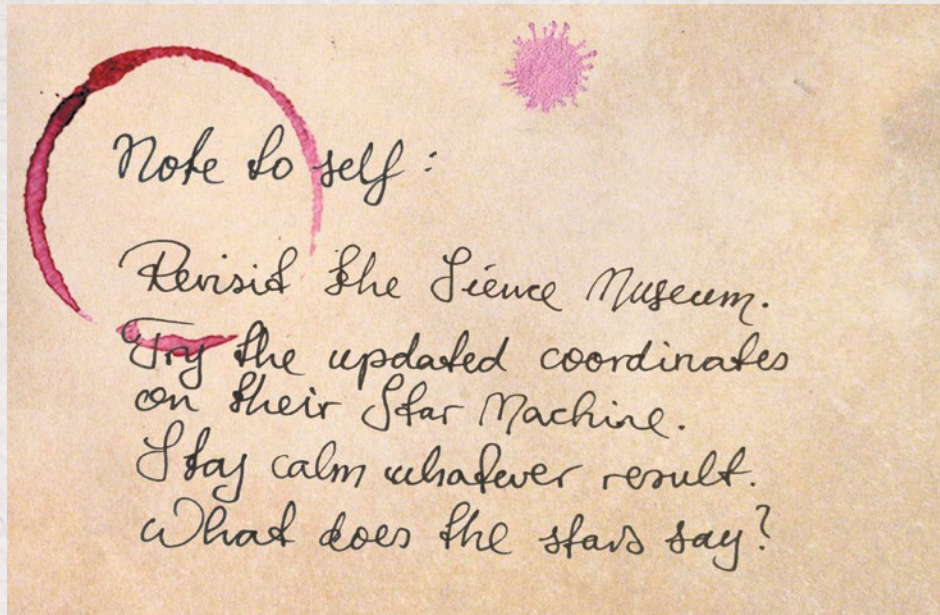 Note to self:
Revisit the Sience Museum.
Try the updated coordinates
on their Star Machine.
Stay calm whatever result.
What does the stars say?